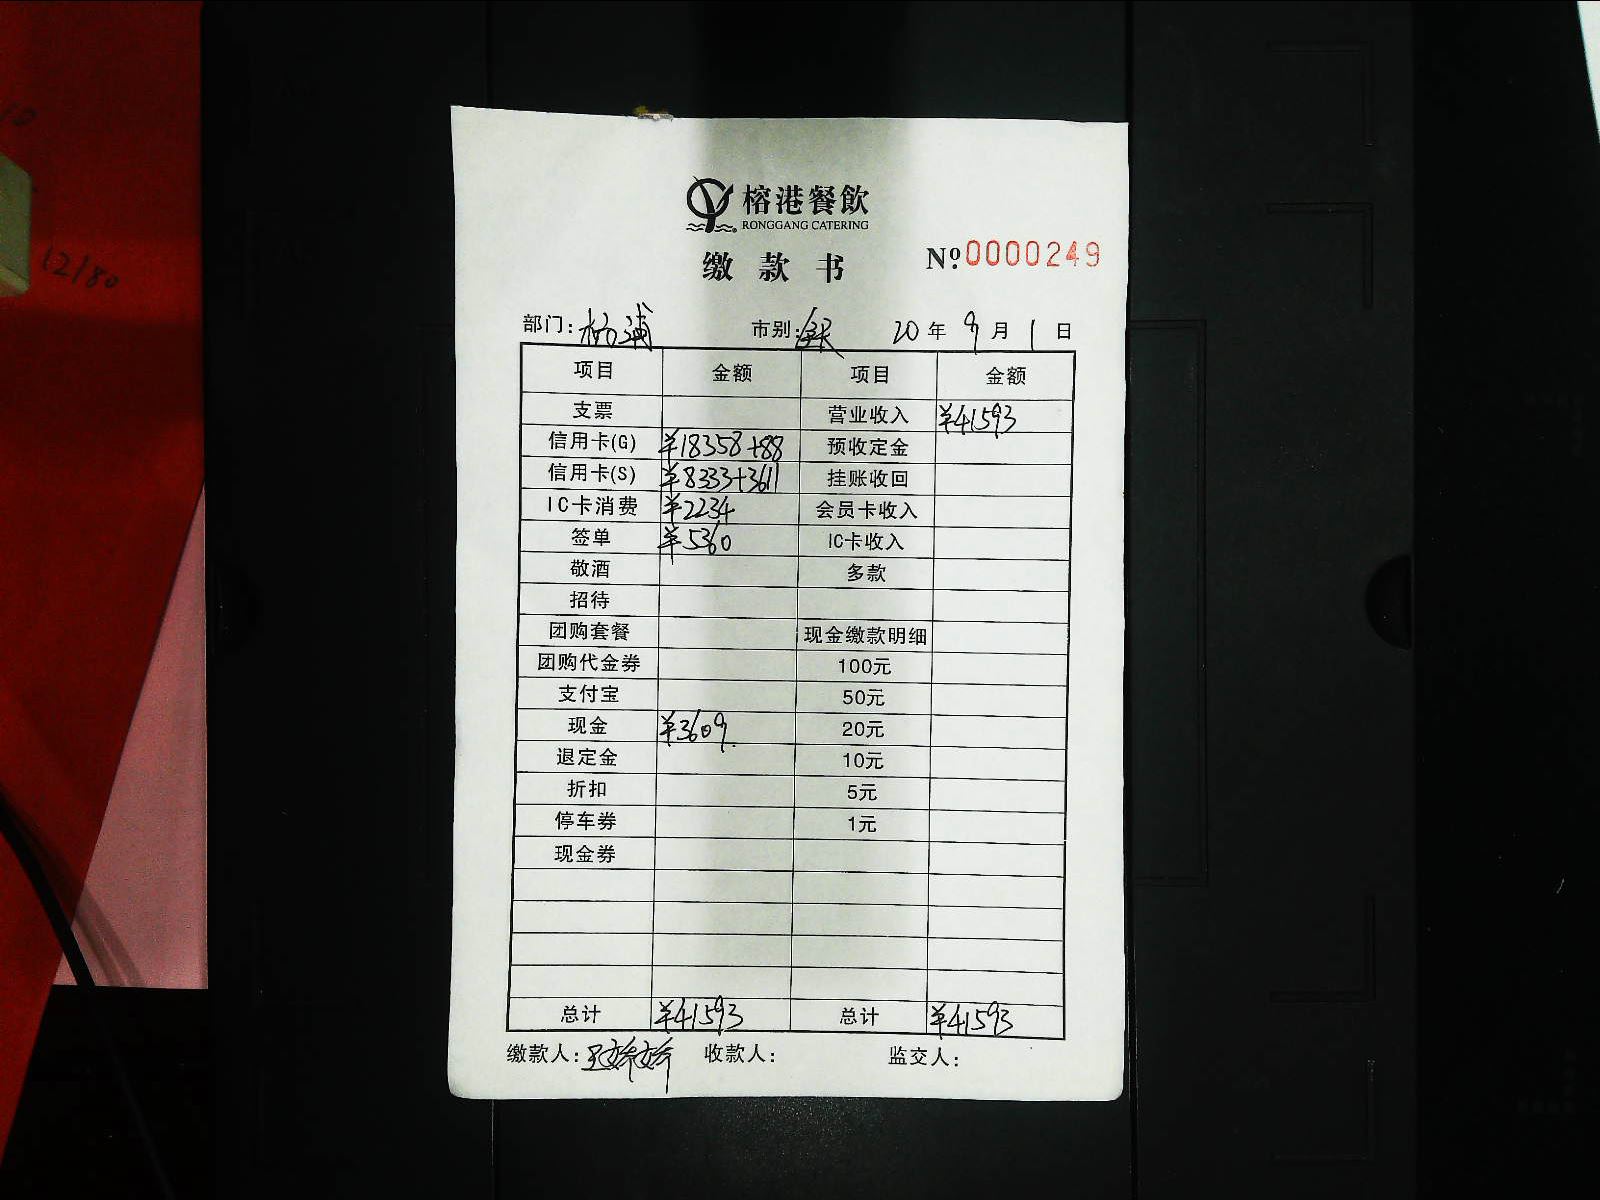 榕港餐飲
RONGGANG CATERING
缴款书 №0000249
部门：杨浦 市别： 20年9月1日
项目 金额 项目 金额
支票 营业收入 ¥41593
信用卡(G) ¥18358+88 预收定金
信用卡(S) ¥8333+3611 挂账收回
IC卡消费 ¥2234 会员卡收入
签单 ¥5360 IC卡收入
敬酒 多款
招待
团购套餐 现金缴款明细
团购代金券 100元
支付宝 50元
现金 ¥3609 20元
退定金 10元
折扣 5元
停车券 1元
现金券
总计 ¥41593 总计 ¥41593
缴款人： 收款人： 监交人：
12180